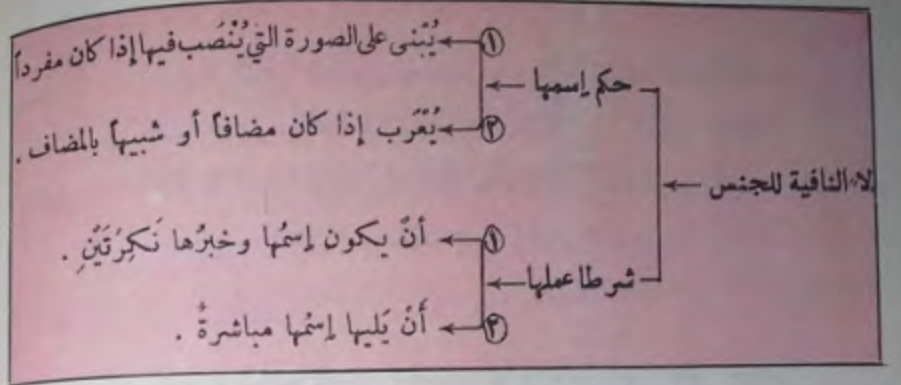 لا النافية للجنس
حكم إسمها
① يُبْنى على الصورة التي يُنْصَب فيها إذا كان مفرداً
② يُعْرَب إذا كان مضافاً أو شبيهاً بالمضاف .
شرطا عملها
① أنْ يكون إسمُها وخبرُها نَكِرَتَيْنِ .
② أَنْ يَليها إسمُها مباشرةً .